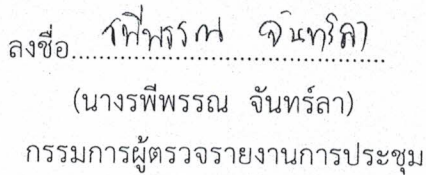 ลงชื่อ รพีพรรณ จันทร์ลา
(นางรพีพรรณ จันทร์ลา)
กรรมการผู้ตรวจรายงานการประชุม